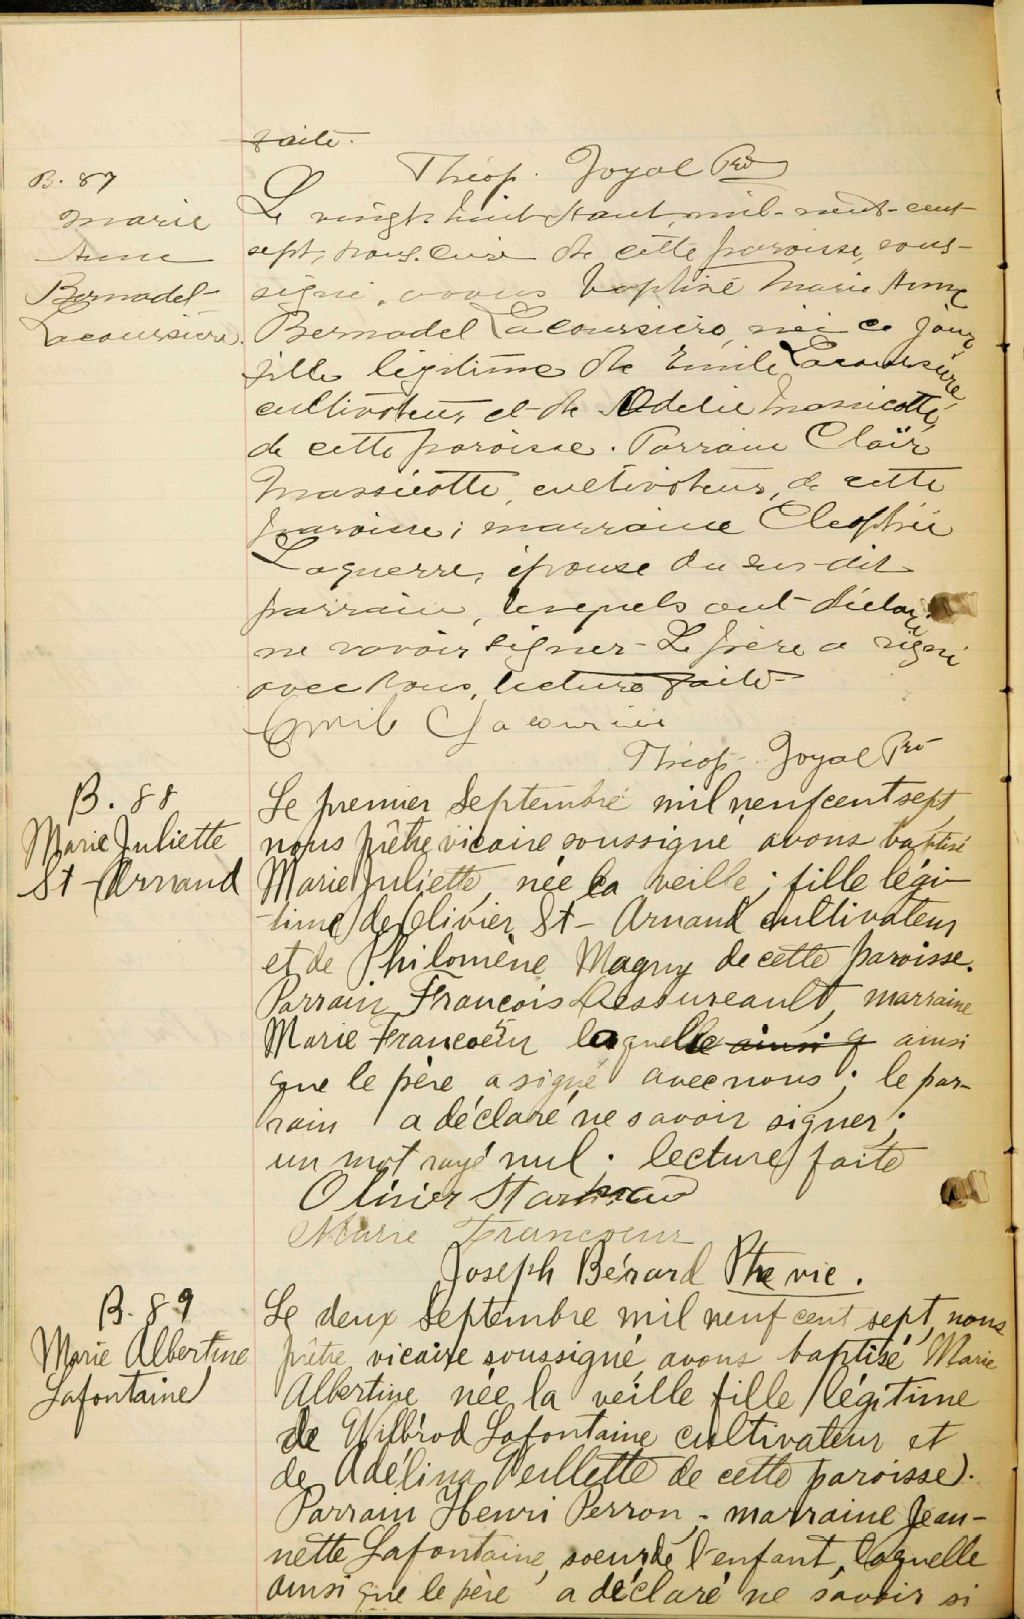 faite.
Théop. Joyal Ptre
B. 87
Marie
Anne
Bernadel
Lacoursière.
Le vingt huit Aout mil-neuf-cent
sept, nous curé de cette paroisse, sous-
signé, avons baptisé Marie Anne
Bernadel Lacoursière, née ce jour
fille légitime de Emile Lacoursière,
cultivateur, et de Odelie Massicotte,
de cette paroisse. Parrain Claïr
Massicotte, cultivateur, de cette
paroisse; marraine Cleophée
Laguerre, épouse du sus-dit
parrain, lesquels ont déclaré
ne savoir signer. Le père a signé
avec nous, lecture faite
Emil Lacourcier
Théop. Joyal Ptre
B. 88
Marie Juliette
St-Arnaud
Le premier Septembre mil neuf cent sept,
nous prêtre vicaire soussigné avons baptisé
Marie Juliette née la veille; fille légi-
time de Olivier St-Arnaud cultivateur
et de Philomène Magny de cette paroisse.
Parrain François Dessureault, marraine
Marie Francoeur laquelle ainsi q ainsi
que le père a signé avec nous; le par-
rain a déclaré ne savoir signer;
un mot rayé nul. lecture faite
Olivier Starnaud
Marie Francoeur
Joseph Bérard Ptre vic.
B. 89
Marie Albertine
Lafontaine
Le deux Septembre mil neuf cent sept, nous
prêtre vicaire soussigné avons baptisé Marie
Albertine née la veille fille légitime
de Wilbrod Lafontaine cultivateur et
de Adélina Veillette de cette paroisse.
Parrain Henri Perron, - marraine Jean-
nette Lafontaine, soeur de l'enfant, laquelle
ainsi que le père a déclaré ne savoir si